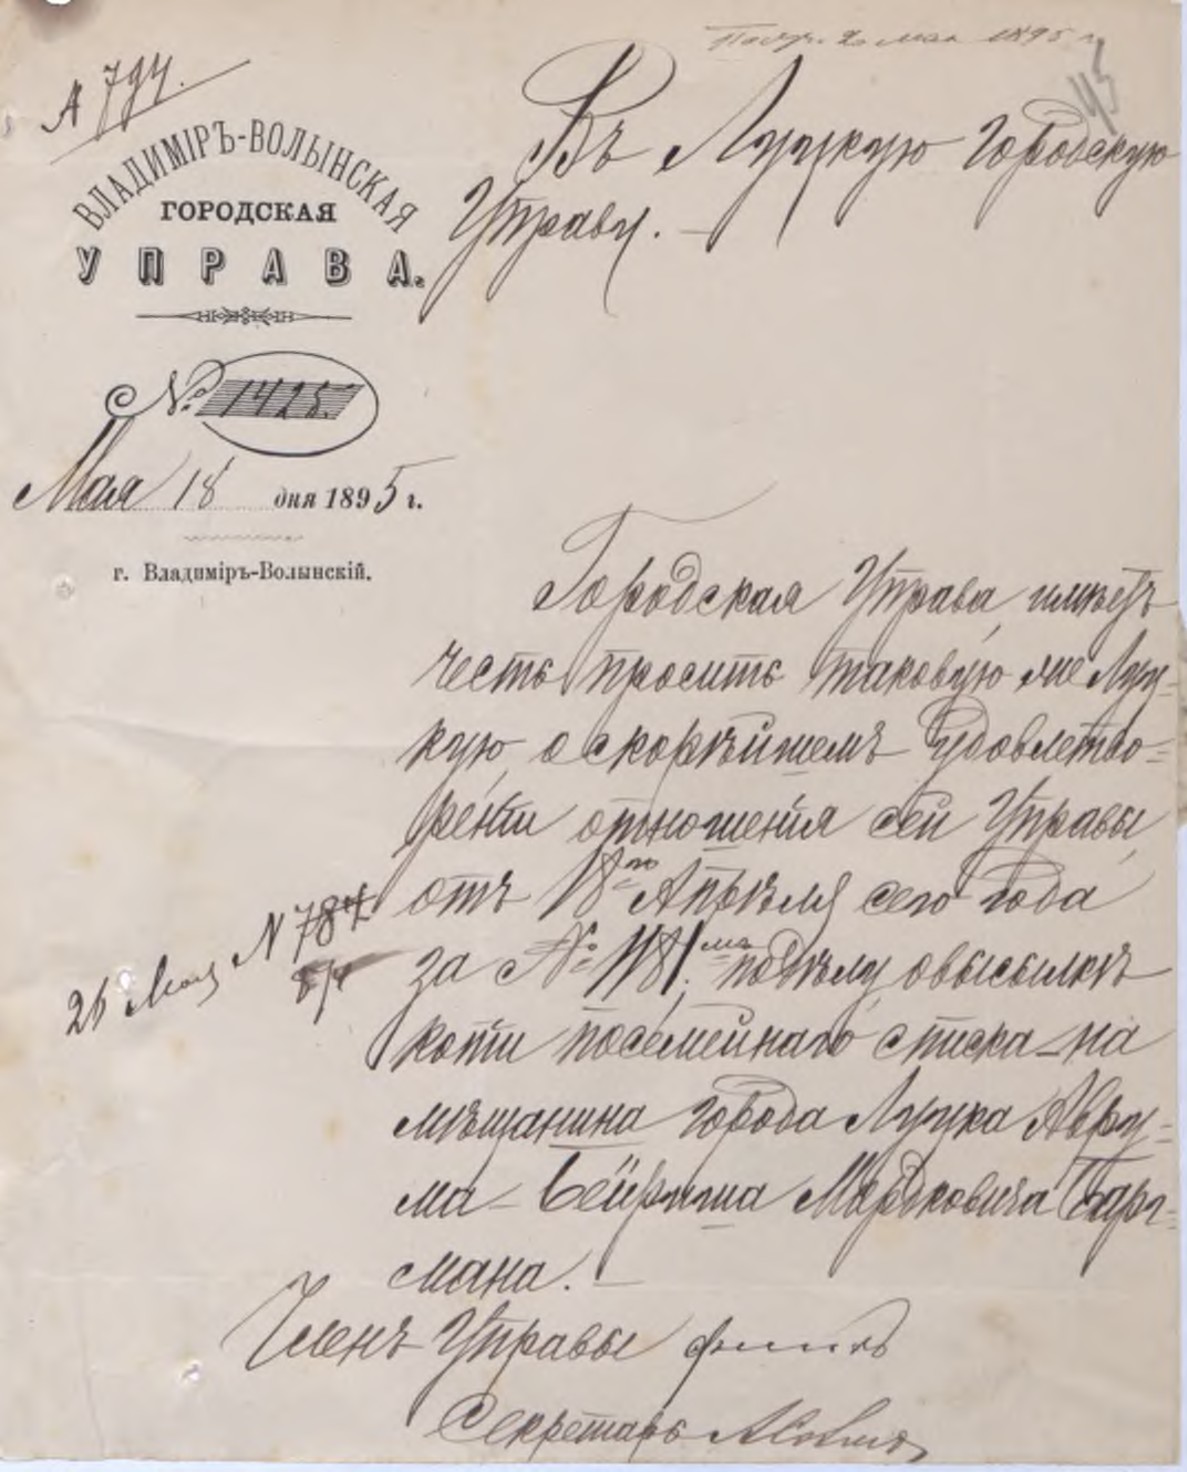 А 794.
ВЛАДИМІРЪ-ВОЛЫНСКАЯ
ГОРОДСКАЯ
УПРАВА.
№ 1425.
Мая 18 дня 1895 г.
г. Владиміръ-Волынскій.
мая 1895 г.
Въ Луцкую городскую
Управу.
Городская Управа имѣетъ
честь просить таковую же Луц-
кую о скорѣйшемъ удовлетво-
реніи отношенія сей Управы
отъ 18го Апрѣля сего года
за № 1181, по дѣлу о высылкѣ
копіи посемейнаго списка на
мѣщанина города Луцка Авру-
ма-Бейриша Мордковича Барг-
мана.
26 Мая N 784
Членъ Управы
Секретарь